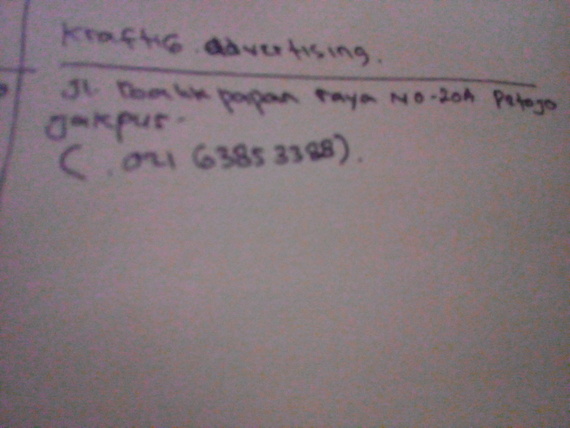 Kraftig advertising.
Jl. Balik papan raya NO-20A Petojo
Jakpus-
(. 021 63853388).